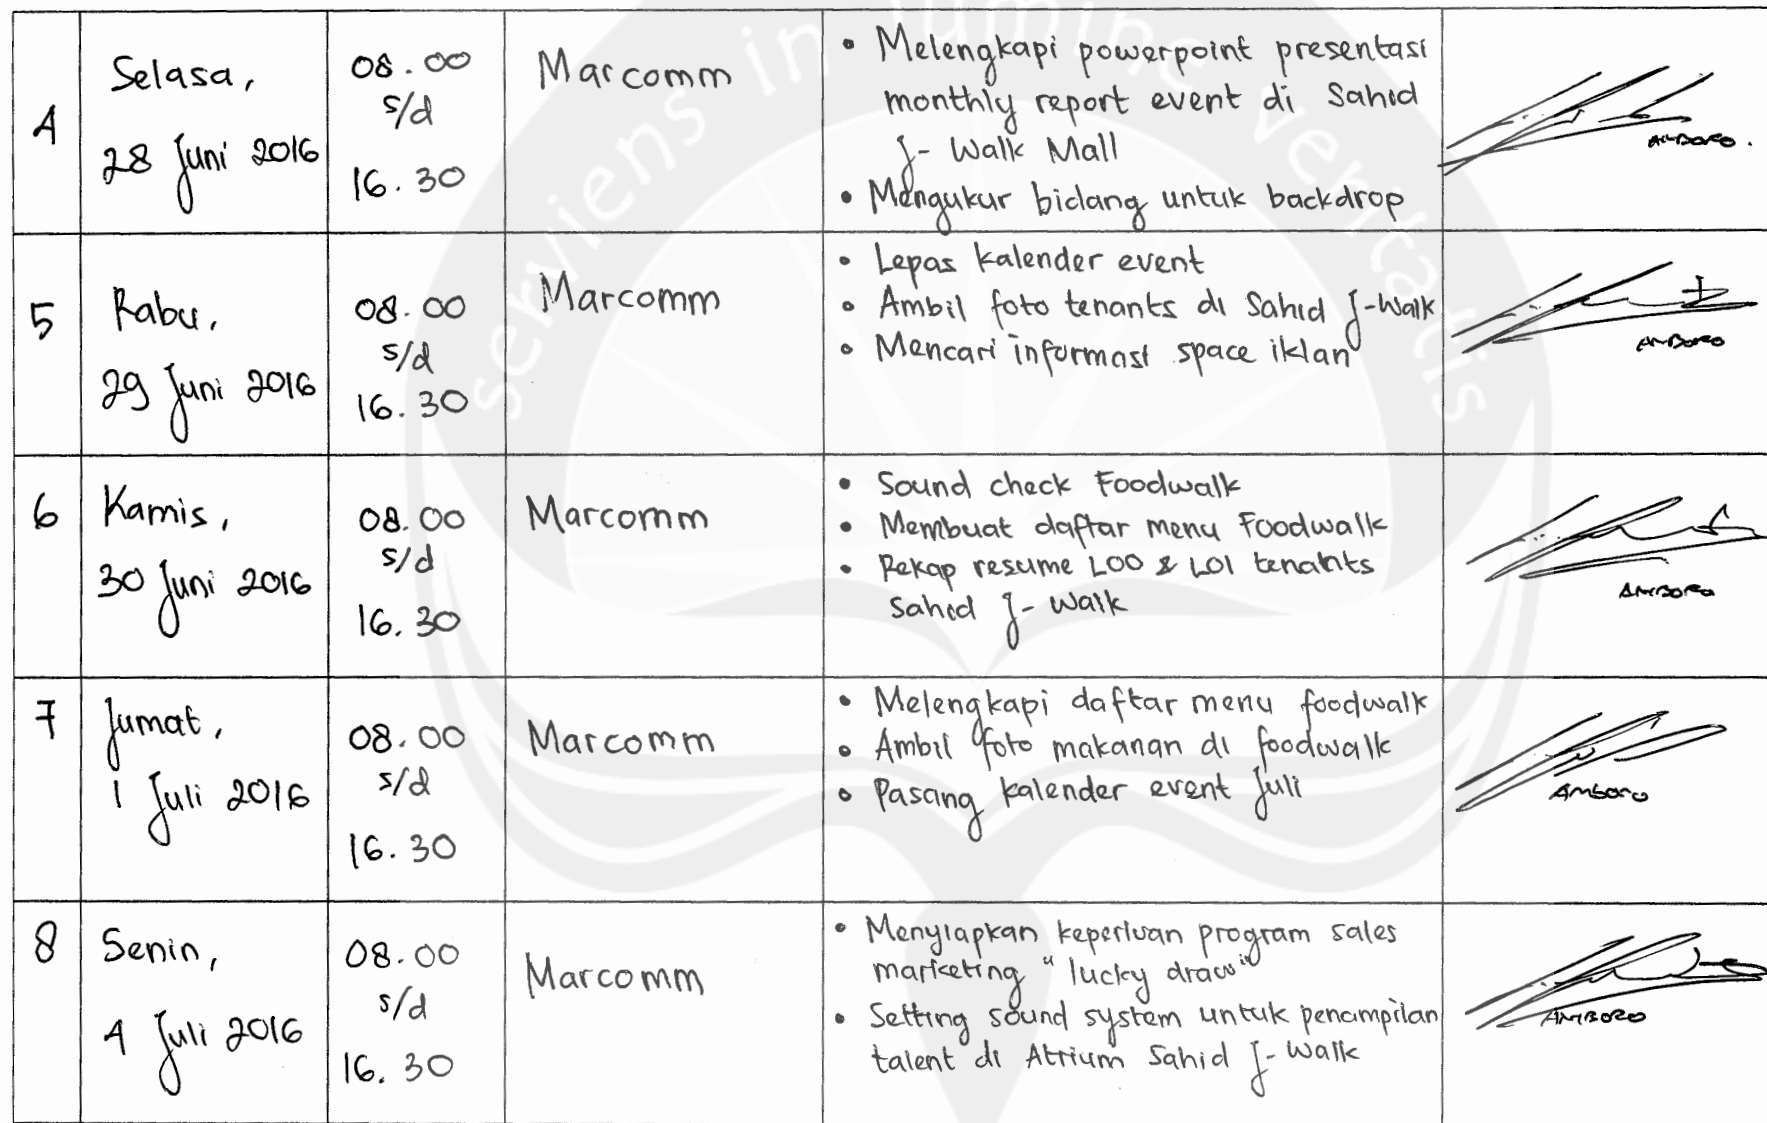 serviens in lumine veritatis
4
Selasa,
28 Juni 2016
08.00
s/d
16.30
Marcomm
• Melengkapi powerpoint presentasi
monthly report event di Sahid
J-Walk Mall
• Mengukur bidang untuk backdrop
AMBORO.
5
Rabu,
29 Juni 2016
08.00
s/d
16.30
Marcomm
• Lepas kalender event
• Ambil foto tenants di Sahid J-Walk
• Mencari informasi space iklan
AMBORO
6
Kamis,
30 Juni 2016
08.00
s/d
16.30
Marcomm
• Sound check Foodwalk
• Membuat daftar menu Foodwalk
• Rekap resume LOO & LOI tenants
Sahid J-Walk
AMBORO
7
Jumat,
1 Juli 2016
08.00
s/d
16.30
Marcomm
• Melengkapi daftar menu foodwalk
• Ambil foto makanan di foodwalk
• Pasang kalender event Juli
AMBORO
8
Senin,
4 Juli 2016
08.00
s/d
16.30
Marcomm
• Menyiapkan keperluan program sales
marketing "lucky draw"
• Setting sound system untuk penampilan
talent di Atrium Sahid J-Walk
AMBORO